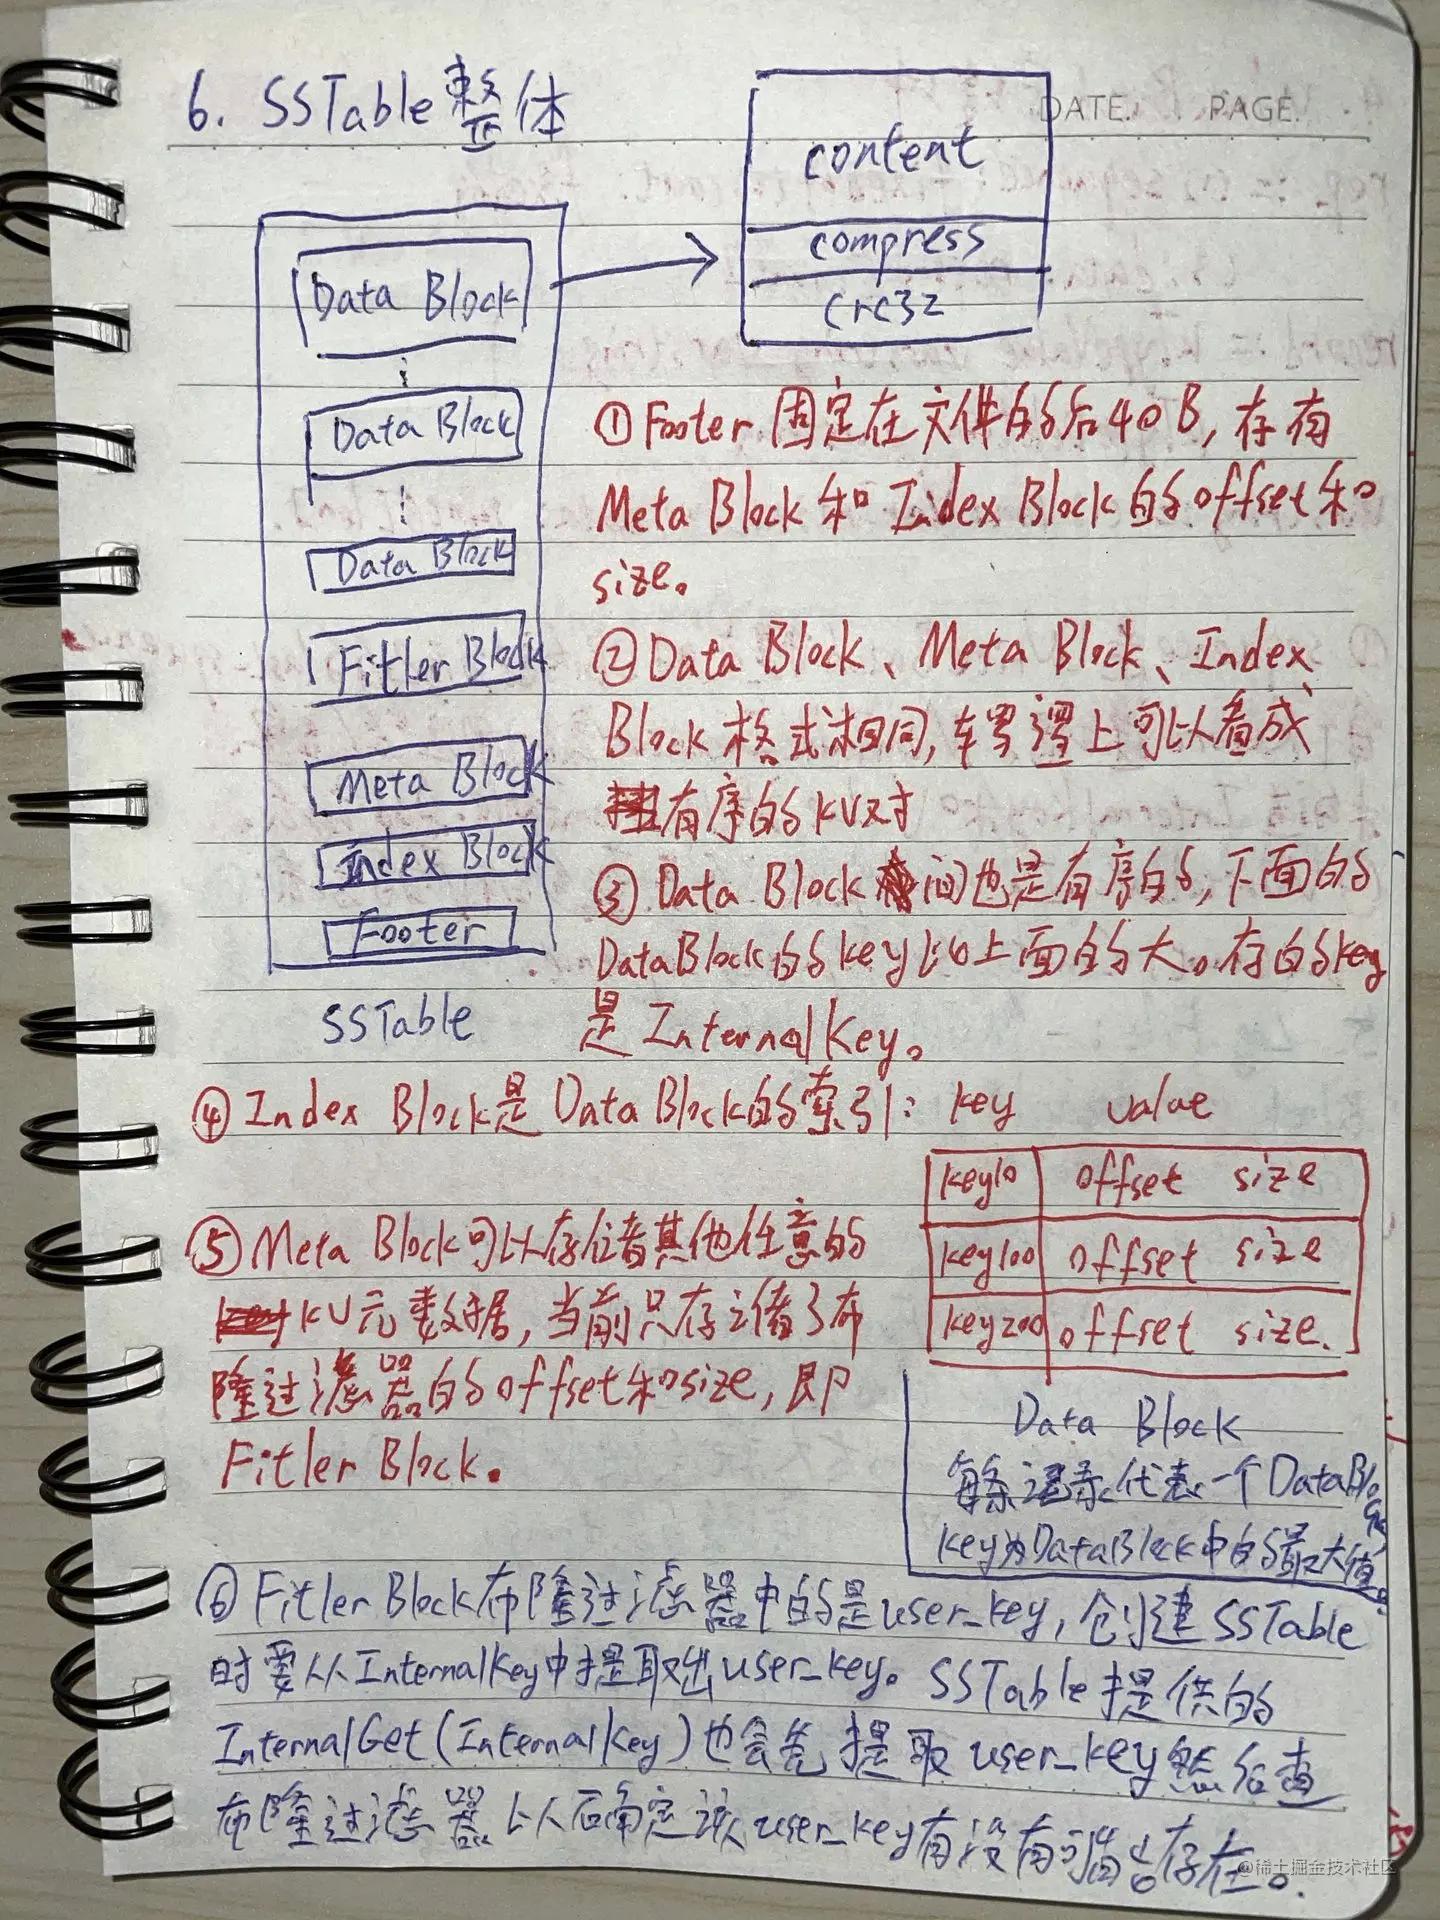 6. SSTable整体
DATE. PAGE.
content
compress
crc32
Data Block
Data Block
Data Block
Fitler Block
Meta Block
Index Block
Footer
SSTable
① Footer 固定在文件的后40B, 存有
Meta Block 和 Index Block 的offset和
size。
② Data Block、Meta Block、Index
Block 格式相同, 逻辑上可以看成
有序的KV对
③ Data Block 间也是有序的, 下面的
DataBlock的key比上面的大。存的key
是InternalKey。
④ Index Block是Data Block的索引: key value
key10 offset size
key100 offset size
key200 offset size.
Data Block
每条记录代表一个DataBlock
key为DataBlock中的最大值。
⑤ Meta Block可以存储其他任意的
KV元数据, 当前只存储了布
隆过滤器的offset和size, 即
Fitler Block.
⑥ Fitler Block布隆过滤器中的是user_key, 创建SSTable
时要从InternalKey中提取出user_key。SSTable提供的
InternalGet(InternalKey)也会先提取user_key然后查
布隆过滤器以确定该user_key有没有可能存在。
@稀土掘金技术社区